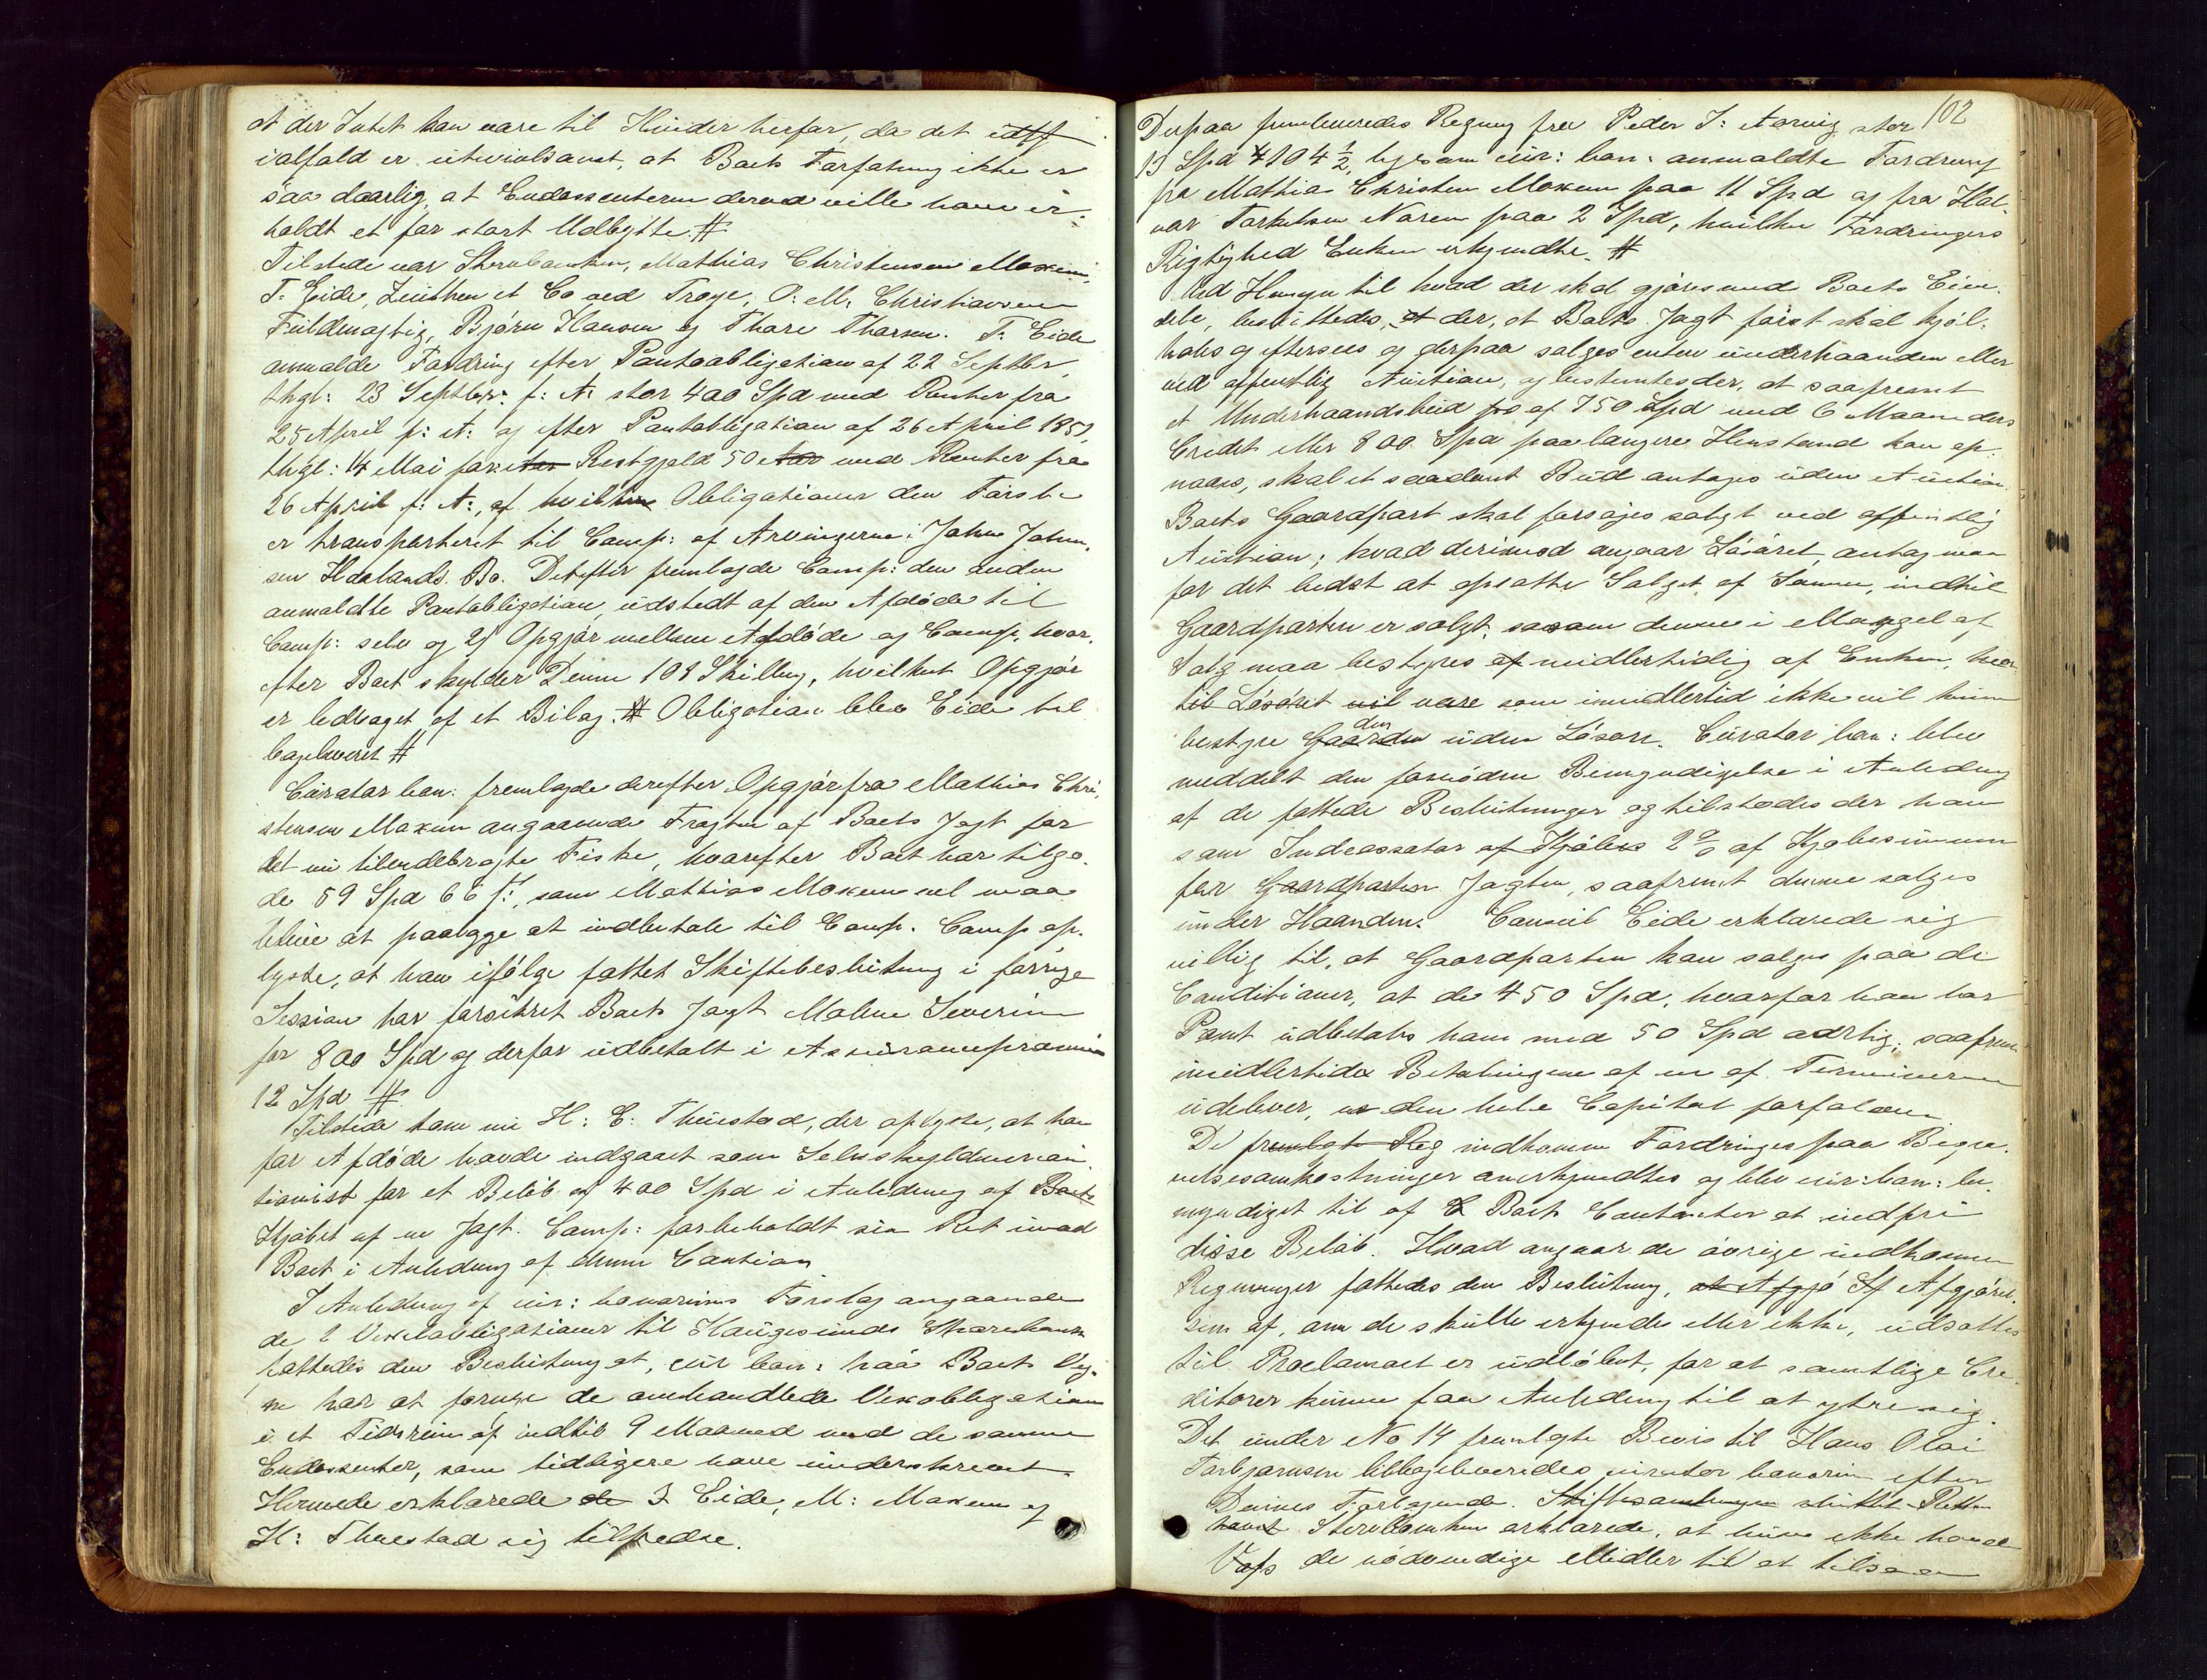 at der Intet kan være til Hinder herfor, da det
ialfald er utvivlsomt, at Boets Forfatning ikke er
saa daarlig, at Endossenterne derved ville have er-
holdt et for stort Udbytte. #
Tilstede var Sterboenken, Mathias Christensen Moxem,
T: Eide, Zeuthen et Co ved Troye, O: M: Christiansens
Fuldmægtig, Bjørn Hansen og Thore Thorsen. T: Eide
anmeldte Fordring efter Pantobligation af 22 Septbr,
thgl: 23 Septbr: f: A: stor 400 Spd med Renter fra
25 April f: A: og efter Pantobligation af 26 April 1851,
thgl: 14 Mai Restgjæld 50 med Renter fra
26 April f: A:, af Obligationer den første
er transporteret til Comp: af Arvingerne i Johan Johan-
sen Haalands Bo. Derefter fremlagde Comp: den anden
anmeldte Pantobligation udstedt af den Afdøde til
Comp: selv og 2) Opgjør mellem Afdøde og Comp, hvor-
efter Boet skylder Denne 108 Skilling, hvilket Opgjør
er ledsaget af et Bilag. # Obligation blev Eide til-
bageleveret #
Curator bon: fremlagde derefter Opgjør fra Mathias Chri-
stensen Moxem angaaende Fragten af Boets Jagt for
det nu tilendebragte Fiske, hvorefter Boet har tilgo-
de 59 Spd 66 f:, som Mathias Moxem vel maa
blive at paalægge at indbetale til Comp. Comp op-
lyste, at han ifølge fattet Skiftebeslutning i forrige
Session har forsikret Boets Jagt Malene Severine
for 800 Spd og derfor udbetalt i Assurancepræmie
12 Spd #
Tilstede kom nu H: E: Thuestad, der oplyste, at han
for Afdøde havde indgaaet som Selvskyldnercau-
tionist for et Beløb af 400 Spd i Anledning af Boets
Kjøbet af en Jagt. Comp: forbeholdt sin Ret imod
Boet i Anledning af denne Caution
I Anledning af cur: bonorums Forslag angaaende
de 2 Vexelobligationer til Haugesunds Sparebank
fattedes den Beslutning at, cur bon: paa Boets Veg-
ne har at fornye de omhandlede Vexobligationer
i et Tidsrum af indtil 9 Maaned med de samme
Endossenter, som tidligere have underskrevet.
Hermede erklærede T. Eide, M: Moxem og
H: Thuestad sig tilfredse.
102
Derpaa fremleveredes Regning fra Peder J: Aarvig stor
13 Spd # 104 1/2, ligesom cur: bon: anmeldte Fordring
fra Mathias Christen Moxem paa 11 Spd og fra Hal-
vor Torkelsen Norem paa 2 Spd, hvilke Fordringers
Rigtighed Enken erkjendte. #
Med Hensyn til hvad der skal gjøres med Boets Eien-
dele, besluttedes der, at Boets Jagt først skal kjøl-
hales og eftersees og derpaa sælges enten underhaanden eller
ved offentlig Auction, og bestemtes der, at saafremt
et Underhaandsbud af 750 Spd med 6 Maaneders
Credit eller 800 Spd paa længere Henstand kan op-
naaes, skal et saadant Bud antages uden Auction.
Boets Gaardpart skal forsøges solgt ved offentlig
Auction; hvad derimod angaar Løsøret, antog man
for det bedst at opsætte Salget af Samme, indtil
Gaardparten er solgt, saasom denne i Mangel af
Salg maa bestyres midlertidig af Enken, hvor-
til Løsøret vil være som imidlertid ikke vil kunne
bestyre Gaarden den uden Løsøre. Curator bon: blev
meddelt den fornødne Bemyndigelse i Anledning
af de fattede Beslutninger og tilstodes der ham
som Indcassator af Kjøbes 2 % af Kjøbesummen
for Gaardparten Jagten, saafremt denne sælges
under Haanden. Consul Eide erklærede sig
villig til, at Gaardparten kan sælges paa de
Conditioner, at de 450 Spd, hvorfor han har
Pant udbetales ham med 50 Spd aarlig; saafremt
imidlertid Betalingen af en af Terminerne
udebliver, er den hele Capital forfalden
De fremlagte Reg indkomne Fordringer paa Begra-
velsesomkostninger anerkjendtes og blev cur: bon: be-
myndiget til af Boets Contanter at indfri
disse Beløb. Hvad angaar de øvrige indkomne
Regninger fattedes den Beslutning, at Afgjø Af Afgjørel-
sen af, om de skulle erkjendes eller ikke, udsattes
til Proclamaet er udløbet, for at samtlige Cre-
ditorer kunne faa Anledning til at ytre sig.
Det under No 14 fremlagte Bevis til Hans Olai
Torbjørnsen tilbageleveredes curator bonorum efter
Dennes Forlangende. Skiftesamlingen sluttet Retten
hævet Sterboenken erklærede, at hun ikke havde
de nødvendige Midler til at tilsaa